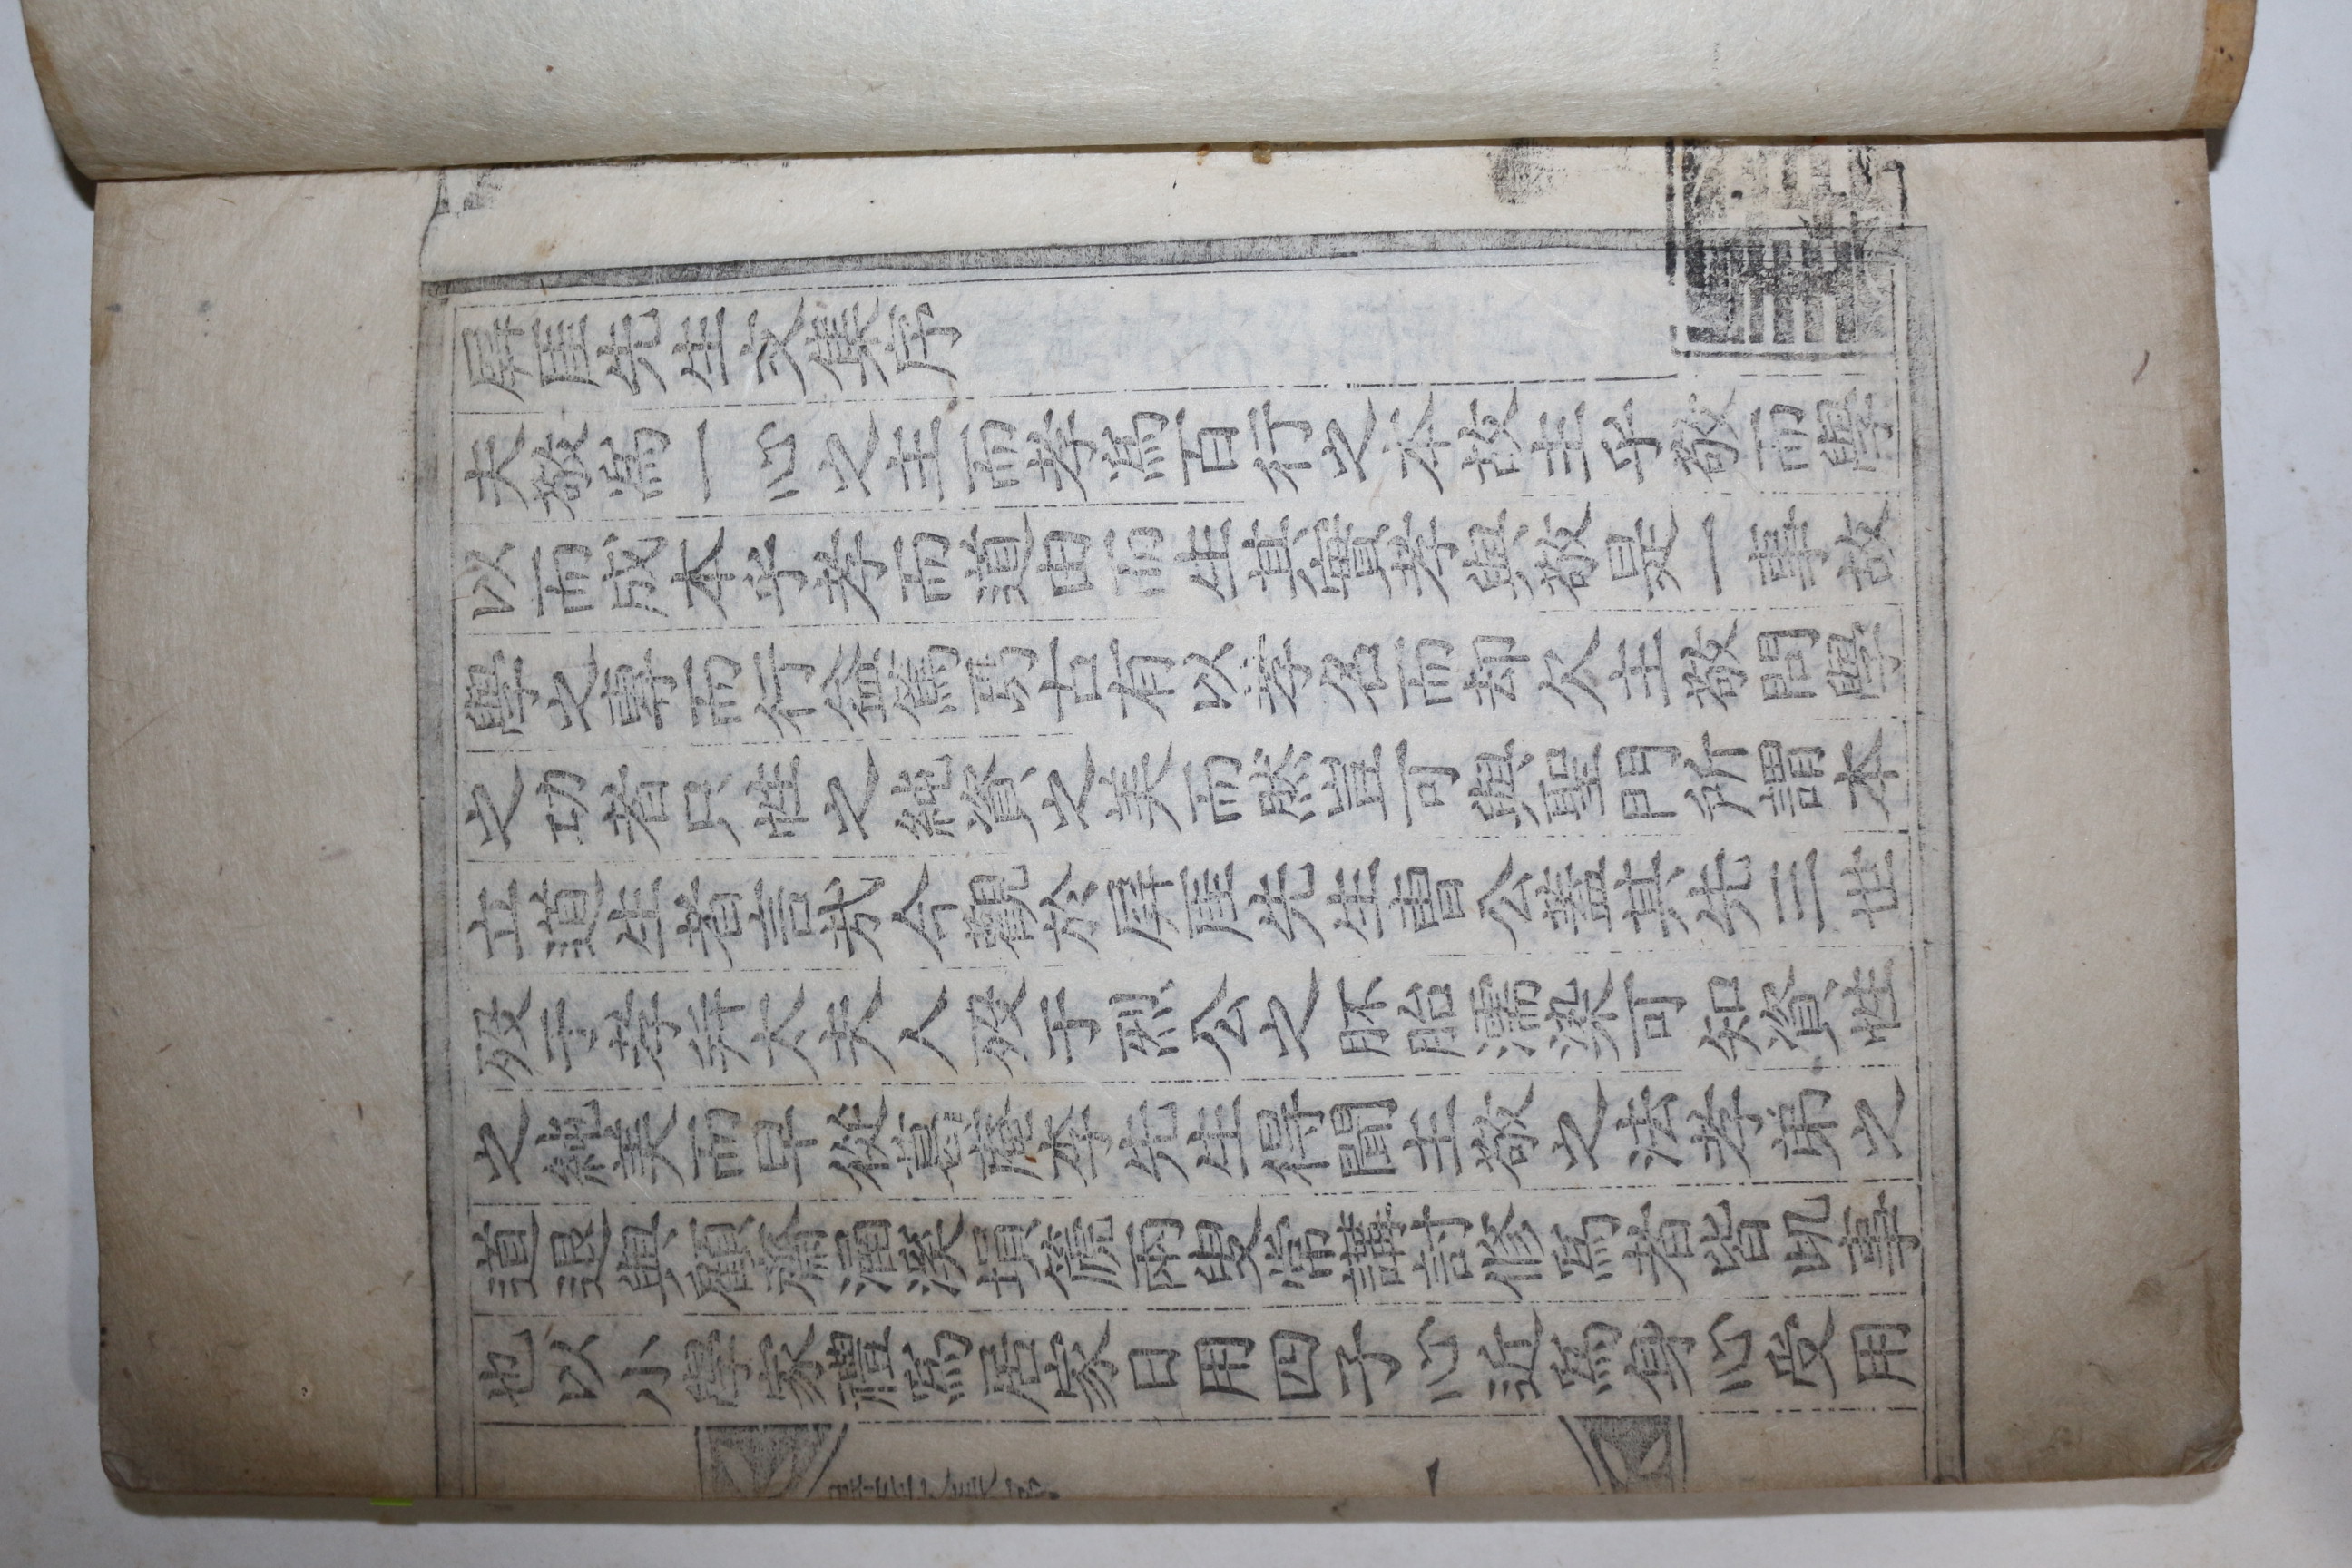 屛厓先生文集序
夫敬爲一心之主而孝爲百行之本故主乎敬而學
以而成本乎孝而道由而生其實孝與敬是一事故
學之專而行益篤焉古有以孝名而却欠主敬問學
之功者只性之純資之美而然豈可與聖門所謂本
立道生者言㢤今觀於屛厓先生曺公蓋其先三世
歿于孝并太夫人歿于烈公之胚胎濡染可知資性
之純美而早從葛庵李先生得聞主敬之法孝弟之
道退與顧齋涵溪塤篪兩叟常講討修爲者皆此事
也以小學家禮爲居家日用四子心近爲身心受用